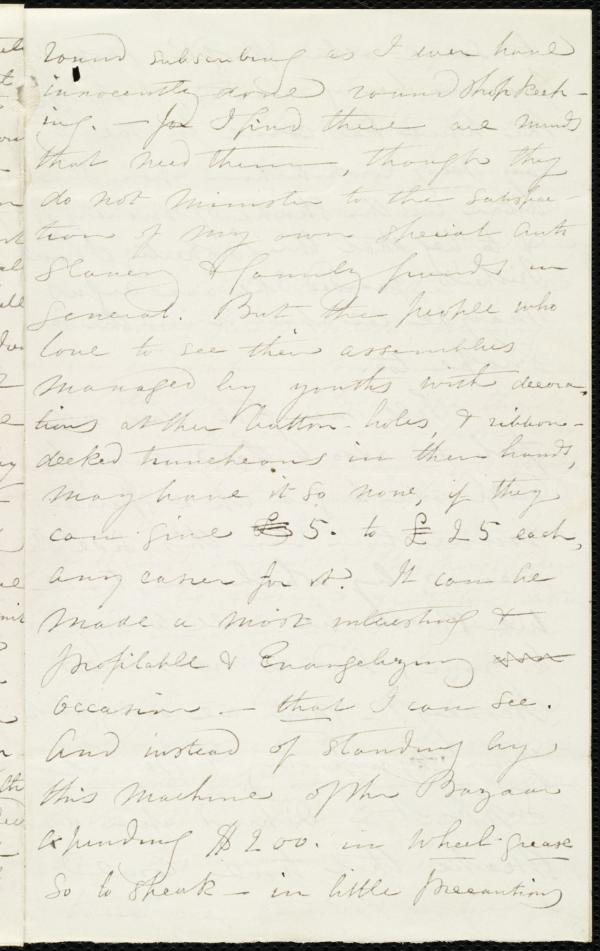 round subscribing as I ever have
innocently done round shopkeep-
ing. — for I find there are minds
that need them, though they
do not minister to the satisfac-
tion of my own special anti
slavery & family funds in
general. But the people who
love to see their assemblies
managed by youths with decora-
tions at their button-holes, & ribbon-
decked truncheons in their hands,
may have it so now, if they
can give £ 5. to £ 25 each,
any easier for it. It can be
made a most interesting &
profitable & Evangelizing
occasion — that I can see.
And instead of standing by
this machine of the Bazaar
expending $200. in wheel-grease
so to speak — in little precautions